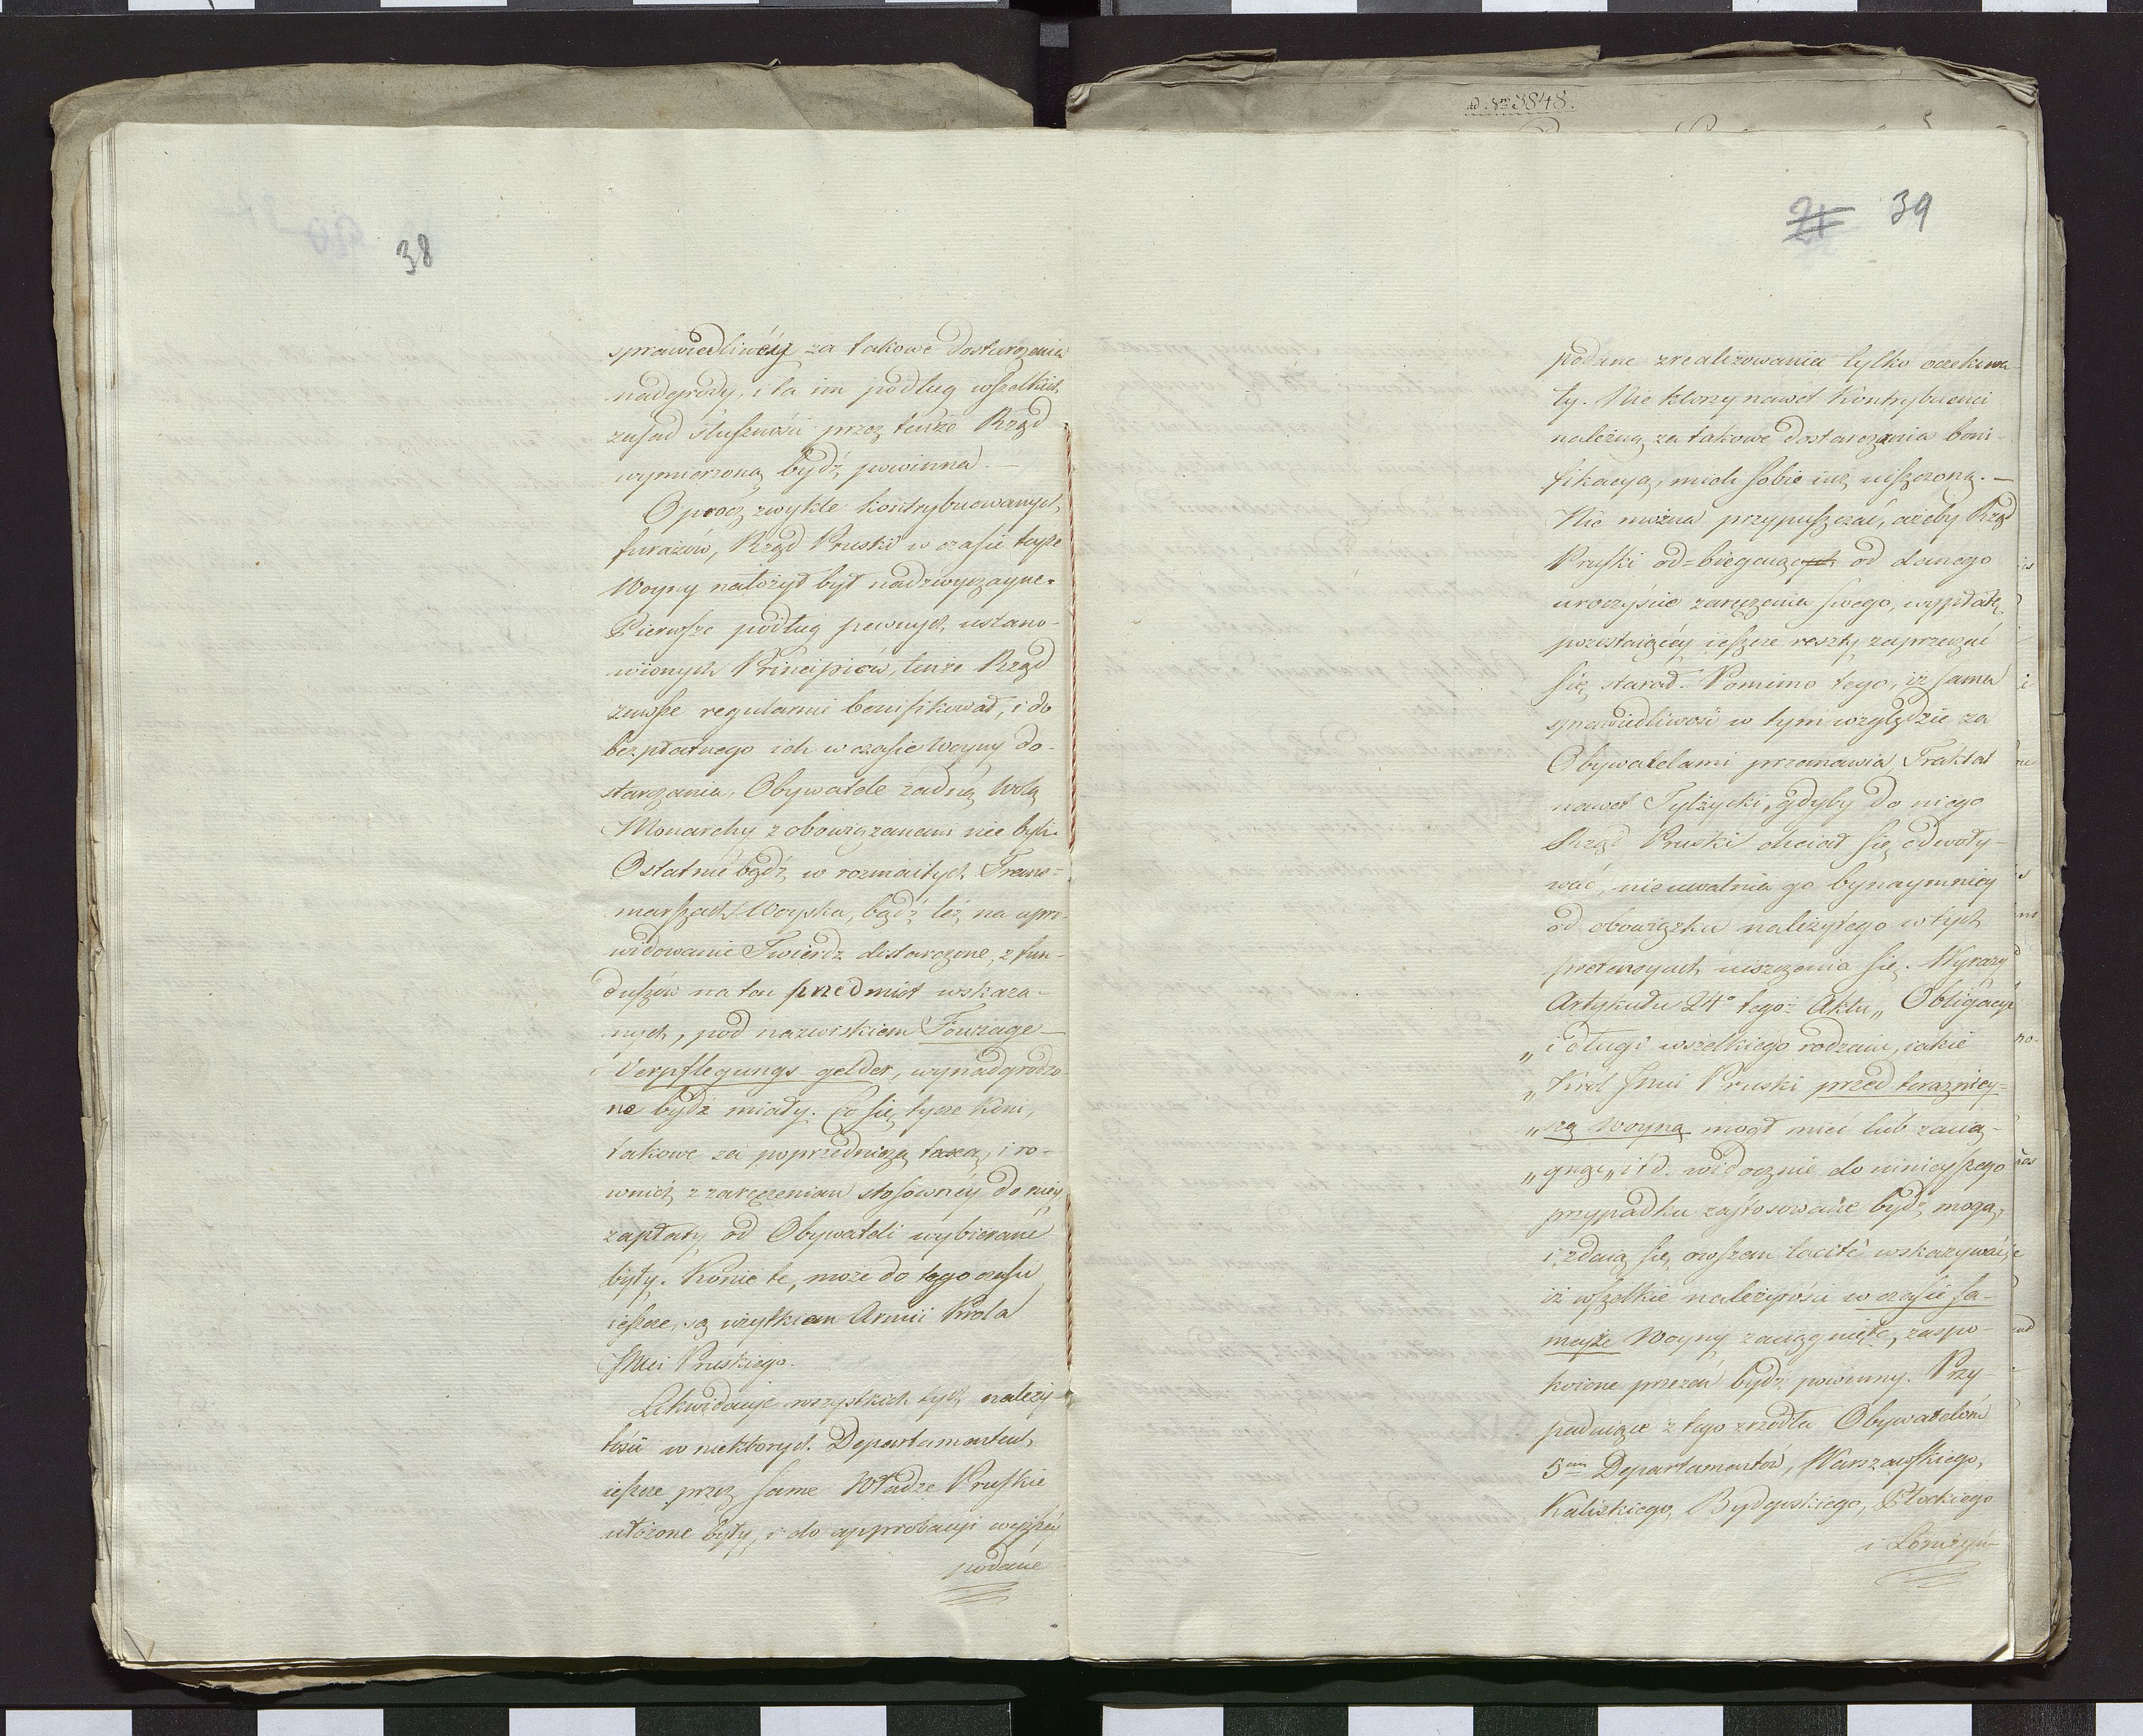 ad Nro 3848.
38
sprawiedliwéy za takowe dostarczenia
nadgrody, i ta im podług wszelkich
zasad słuszności przez tenże Rząd
wymierzoną bydź powinna. —
Oprócz zwykle kontrybuowanych
furażów, Rząd Pruski w czasie teyże
Woyny nałożył był nadzwyczayne.
Pierwsze podług pewnych, ustano-
wionych Principiów, tenże Rząd
zawsze regularnie bonifikował, i do
bezpłatnego ich w czasie Woyny do-
starczania, Obywatele żadną Wolą
Monarchy zobowiązanemi nie byli.
Ostatnie bądź w rozmaitych Trans=
marszach Woyska, bądź też na apro-
widowanie Twierdz dostarczone, z fun-
duszów na ten przedmiot wskaza-
nych, pod nazwiskiem Fourage
i Verpflegungs-gelder, wynadgrodzo-
ne bydź miały. Co się tycze Koni,
takowe za poprzedniczą taxą, i ro-
wnież z zaręczeniem stosownéy do niéy
zapłaty od Obywateli wybierane
były. Konie te, może do tego czasu
ieszcze, są użytkiem Armii Króla
JMci Pruskiego.
Likwidacye wszystkich tych należy-
tości w niektorych Departamentach
ieszcze przez same Władze Pruskie
ułożone były, i do approbacyi wyższéy
podane
21 39
podane zrealizowania tylko oczekiwa-
ły. Nie ktorzy nawet Kontrybuenci
należną za takowe dostarczenia boni-
fikacyą, mieli sobie iuż uiszczoną. —
Nie można przypuszczać, ażeby Rząd
Pruski od=biegaiąc od danego
uroczyście zaręczenia swego, wypłatę
pozostaiącéy ieszcze reszty zaprzeczać
się starał. Pomimo tego, iż sama
sprawiedliwość w tym względzie za
Obywatelami przemawia, Traktat
nawet Tylżycki, gdyby do niego
Rząd Pruski chciał się odwoły-
wać, nie uwalnia go bynaymniey
od obowiązku należytego w tych
pretensyach uiszczenia się. Wyrazy
Artykułu 24o tegoż Aktu „Obligacye
„i długi wszelkiego rodzaiu, iakie
„Król JMci Pruski przed teraźniey=
„szą Woyną mogł mieć lub zacią-
„gnąć„ i t d. widocznie do ninieyszego
przypadku zastosowane bydź mogą,
i zdaią się owszem tacite wskazywać,
iż wszelkie należytości w czasie sa-
meyże Woyny zaciągnięte, zaspo-
koione przezeń bydź powinny. Przy-
padaiące z tego zrzodła Obywatelom
5ciu Departamentów, Warszawskiego,
Kaliskiego, Bydgoskiego, Płockiego
i Łomżyń-